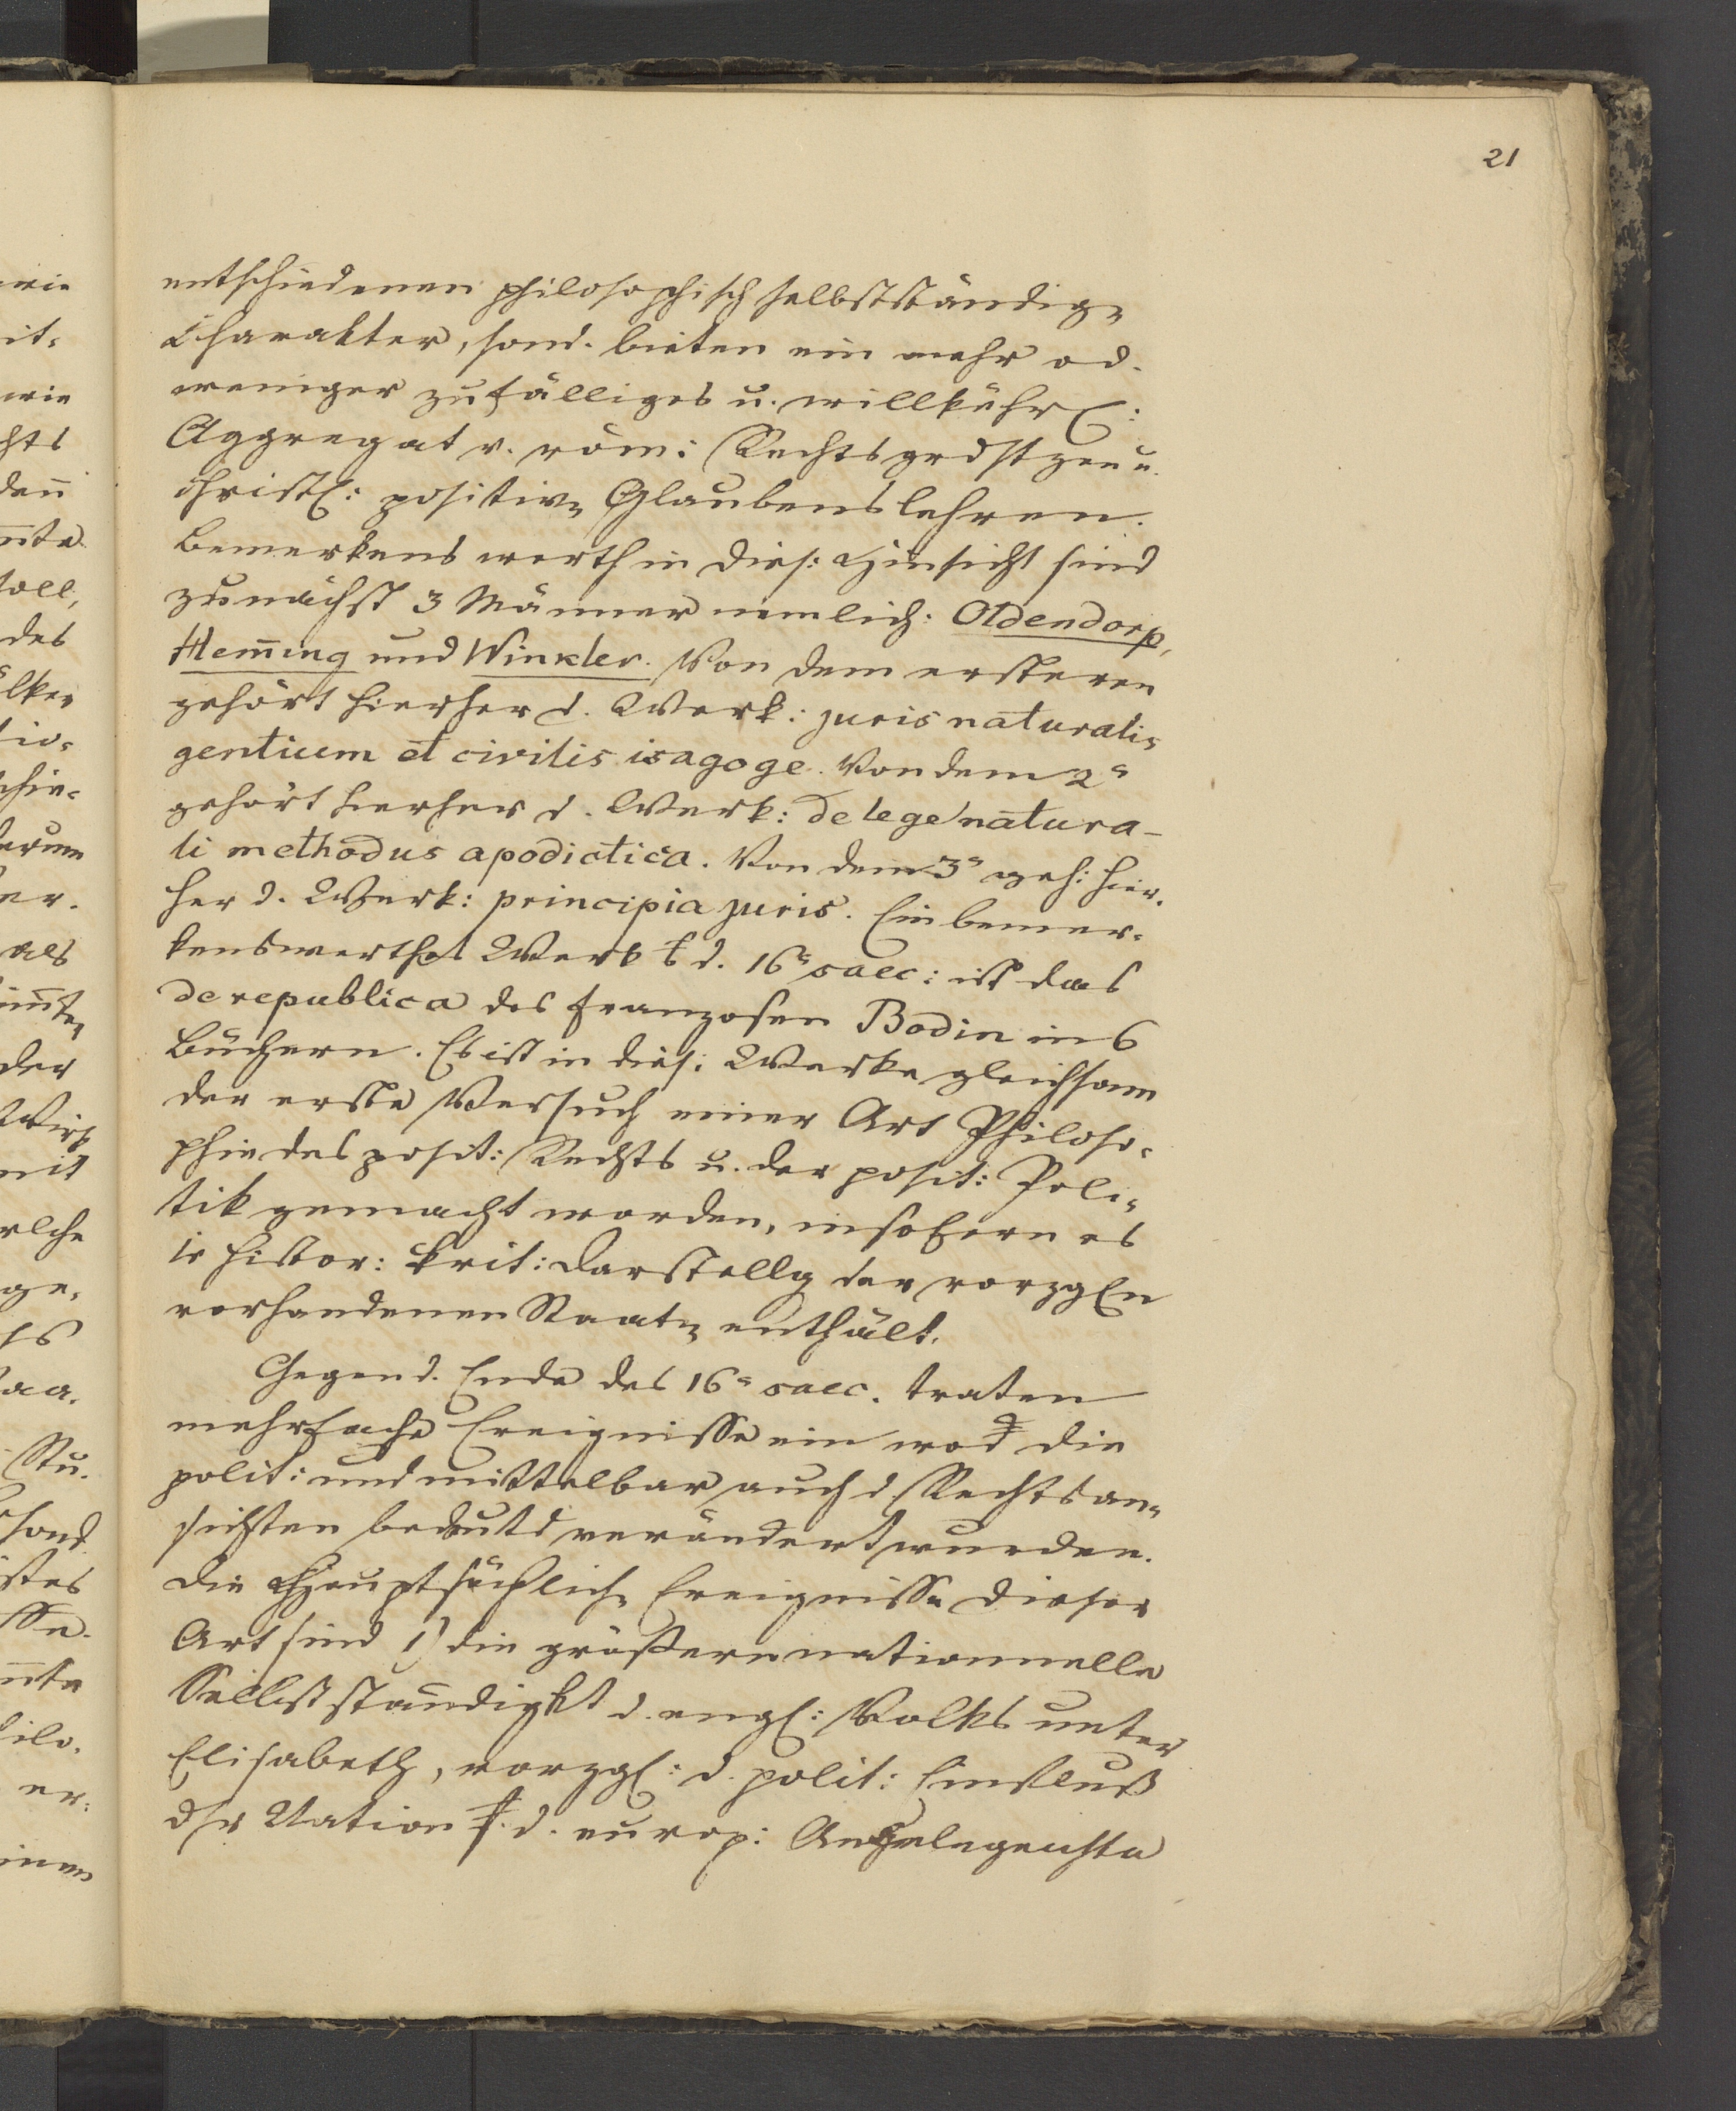 21
entschiedenen philosophisch selbstständig
Charakter, sond. bieten ein mehr od.
weniger zufälliges u. willkührl:
Aggregat v. röm: Rechtsgrdstzen u.
christl: positiv Glaubenslehren.
Bemerkenswerth in dies: Hinsicht sind
zunächst 3 Männer nemlich: Oldendorp,
Hem̄ing und Winkler. Von dem ersteren
gehört hierher d. Werk: juris naturalis
gentium et civilis isagoge. Von dem 2
gehört hierher d. Werk: de lege natura-
li methodus apodictica. Von dem 3 geh: hier-
her d. Werk: principia juris. Ein bemer-
kenswerthes Werk d. 16 saec: ist das
de republica des Franzosen Bodin in 6
Büchern. Es ist in dies: Werke gleichsam
der erste Versuch einer Art Philoso-
phie des posit: Rechts u. der posit: Poli-
tik gemacht worden, insofern es
histor: krit: Darstellg der vorzgln
vorhandenen Staat enthält.
Gegen d. Ende des 16 saec. traten
mehrfache Ereignisse ein die
polit: und mittelbar auch d Rechtsan-
sichten bedeutd verändert wurden.
Die Hauptsächlich Ereignisse dieser
Art sind 1) die größere nationnelle
Selbstständigkt d. engl: Volks unter
Elisabeth, vorzgl: d. polit: Einfluß
dsr Nation d. europ: Angelegenhtn
wie
it-
wie
hts
den̄
soll,
des
chie-
darum
er.
als
der
mit
elche
ge-
Stu-
sond
istes
sse.
er: